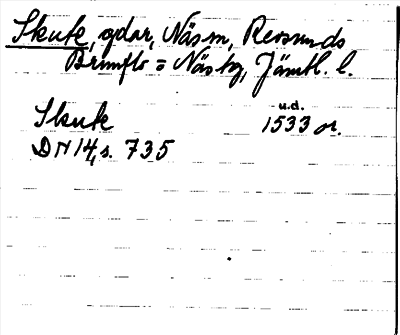 Skuke, gdar, Näs sn, Revsunds
Brunflo = Näs tg, Jämtl. l.
u.d.
Skuke 1533 or.
DN 14, s. 735